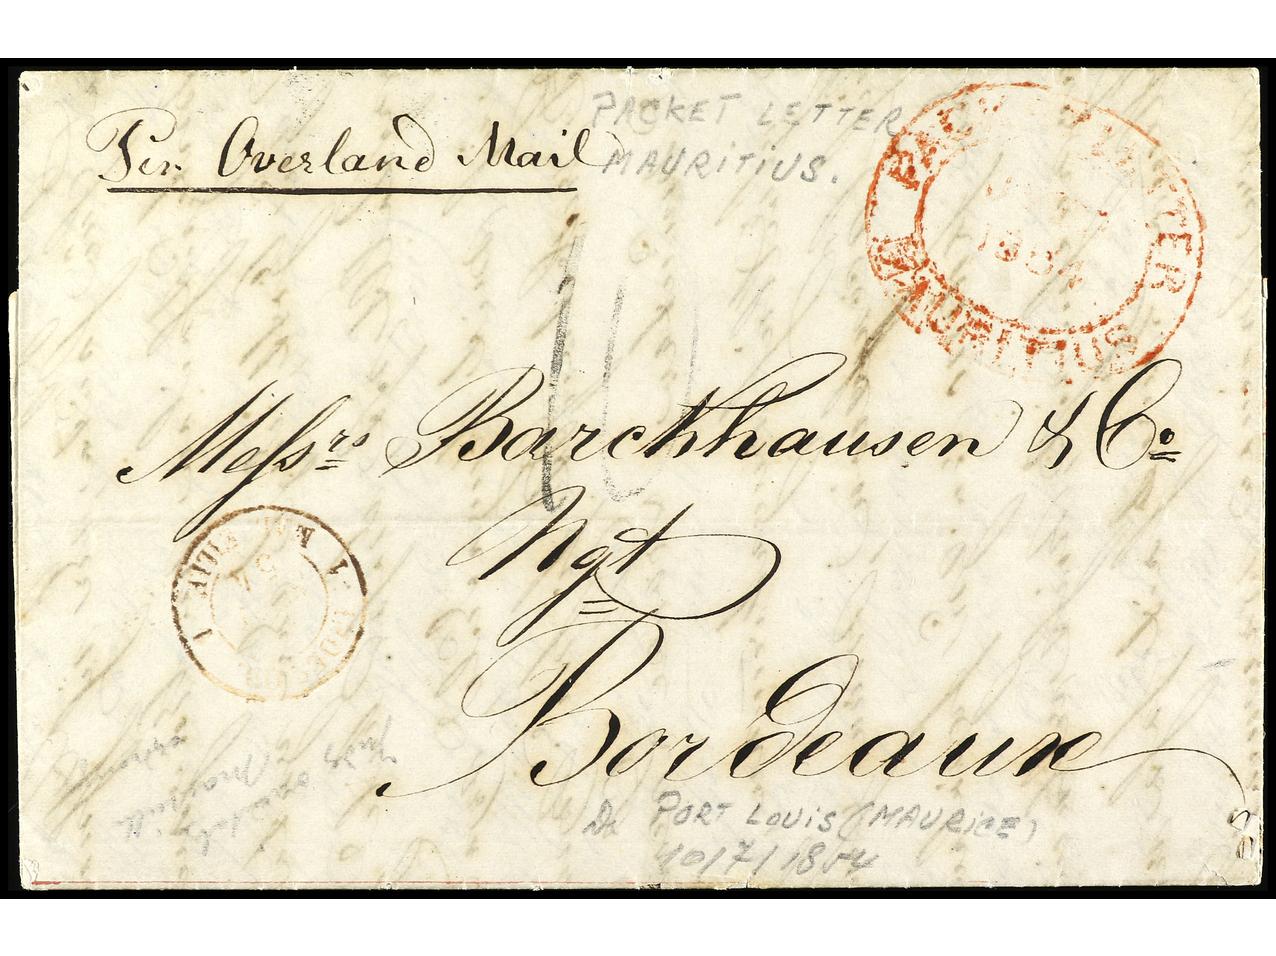 Per Overland Mail
PACKET LETTER
MAURITIUS.
PACKET LETTER
MAURITIUS
1854
10
Messrs Barckhausen & Co
Ngt
Bordeaux
De PORT LOUIS (MAURICE)
10/7/1854